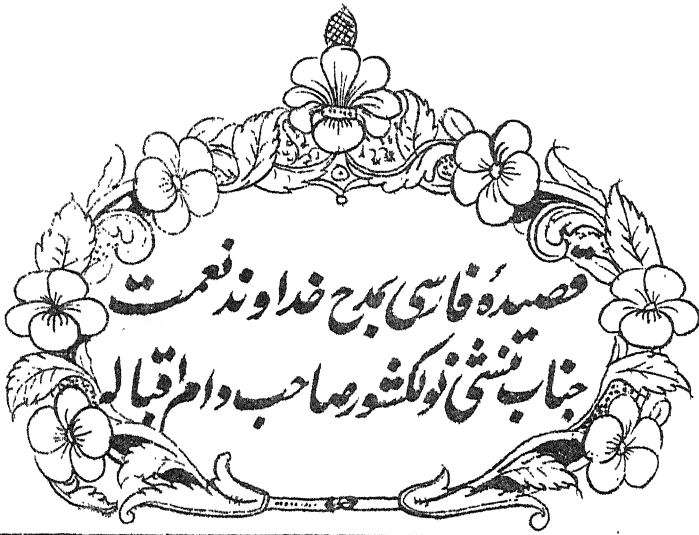 قصیدۂ فارسی بمدح خداوند نعمت
جناب منشی نولکشور صاحب دام اقبالہ